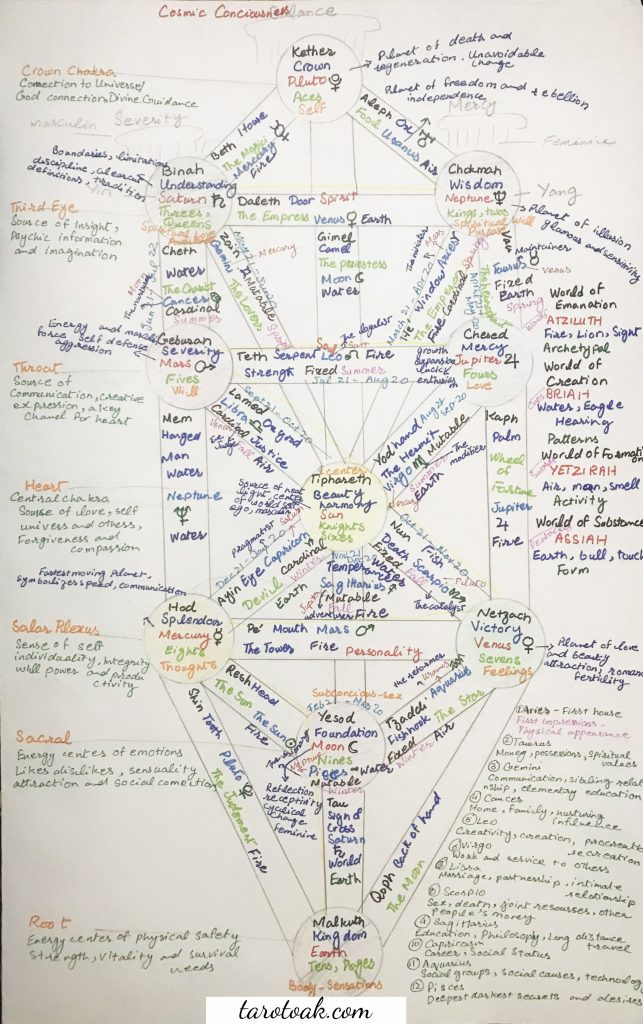 Cosmic Conciousness
Balance
Kether
Crown
Pluto
Aces
Self
Planet of death and
regeneration. Unavoidable
change
Crown Chakra
Connection to Universe/
God connection Divine Guidance
Planet of freedom and rebellion
independence
masculin Severity
Mercy
Feminine
Beth House
The Magici
Mercury
Fire
Aleph Ox
Fool Uranus Air
Boundaries, limitation
discipline, clearcut
definitions, tradition
Binah
Understanding
Saturn
Threes,
Queens
Spiritual
Chokmah
Wisdom
Neptune
Kings, twos
Spiritual Will
Purpose
Yin
Yang
Planet of illusion
glamour and sensitivity
Daleth Door Spirit
The Empress Venus Earth
Third-Eye
Source of Insight,
Psychic information
and imagination
Gimel
Camel
The priestess
Moon
Water
Zain
Gemini
The Lovers
Mutable
Mercury
Cheth
Water
The Chariot
Cancer
Cardinal
Summer
The nurturer
Moon
He' window Aries
The Emperor
Fire Cardinal Spring
March 21 - Apr 20
Vav
Maintainer
Taurus
Venus
Fixed
Earth
Spring
World of
Emanation
ATZILUTH
Fire, Lion, Sight
Archetypal
World of
Creation
BRIAH
Water, Eagle
Hearing
Patterns
World of Formation
YETZIRAH
Air, man, smell
Activity
World of Substance
ASSIAH
Earth, bull, touch
Form
Wands
Cups
Swords
Pentacles
Energy and masculin
force Self defense
aggression
Geburah
Severity
Mars
Fives
Will
The legalist
Soul Sun
Teth Serpent Leo Fire
Strength Fixed Summer
Jul 21 - Aug 20
growth
expansion
luck
enthusias
Chesed
Mercy
Jupiter
Fours
Love
Throat
Source of
Communication, creative
expression, a key
Chanel for heart
Mem
Hanged
Man
Water
Neptune
Water
Sept 21 - Oct 20
Lamed
Libra Ox goad
Cardinal Justice
Venus Fall Air
The Judge
Yod hand Aug 21
Sep 20
The Hermit
Virgo Mutable
Summer
Earth
Mercury
The
modifier
Kaph
Palm
Wheel
of
Fortune
Jupiter
Fire
Icenter
Tiphareth
Beauty
harmony
Sun
Knights
Sixes
Source of heat
light, center
of world self
ego, masculin
Heart
Central chakra
Source of love, self
univers and others,
Forgiveness and
compassion
Pragmatist
Dec 21 - Jan 20
Ayin Eye Capricorn
Devil Cardinal
Winter
Earth
Saturn
Nun Fish
Death Scorpio
Fixed
Water
Fall
Pluto
The catalyst
Temperance
Sagittaries
Mutable
Fall
Jupiter
adventurer Fire
Fastest moving Planet,
symbolizes speed, communication
Hod
Splendor
Mercury
Eights
Thoughts
Pe' Mouth Mars
The Tower Fire Personality
Netzach
Victory
Venus
Sevens
Feelings
Planet of love
and beauty
attraction, romance
fertility
Solar Plexus
Sense of self
individuality, Integrity
will power and produ
ctivity
Resh Head
The Sun
The Sun
Fire
Subconcious-sex
Feb 21 - Mar 20
Yesod
Foundation
Moon
Nines
Pisces
Mutable
Winter
Water
Neptune
the reformer
Uranus
Tzaddi Aquarius
Fishhook The Star
Fixed
Winter Air
Reflection
receptivity
cyclical
change
Feminine
Tau
Sign of
Cross
Saturn
World
Earth
Sacral
Energy center of emotions
Likes dislikes, sensuality
attraction and social connection
Shin Tooth
Pluto
The Judgement Fire
Qoph Back of hand
The Moon
① Aries - First house
First Impressions -
Physical appearance
② Taurus
Money, possessions, spiritual
values
③ Gemini
Communication, sibling relatio
nship, elementary education
④ Cancer
Home, family, nurturing
influence
⑤ Leo
Creativity, coreation, procreation
recreation
⑥ Virgo
Work and service to others
⑦ Libra
Marriage, partnership, intimate
relationship
⑧ Scorpio
Sex, death, joint resourses, other
People's money
⑨ Sagittarius
Education, Philosophy, Long distance
travel
⑩ Capricorn
Career, Social Status
⑪ Aquarius
Social groups, social causes, technology
⑫ Pisces
Deepest darkest secrets and desires
Root
Energy center of physical safety
strength, vitality and survival
needs
Malkuth
Kingdom
Earth
Tens, Pages
Body - Sensations
tarotoak.com